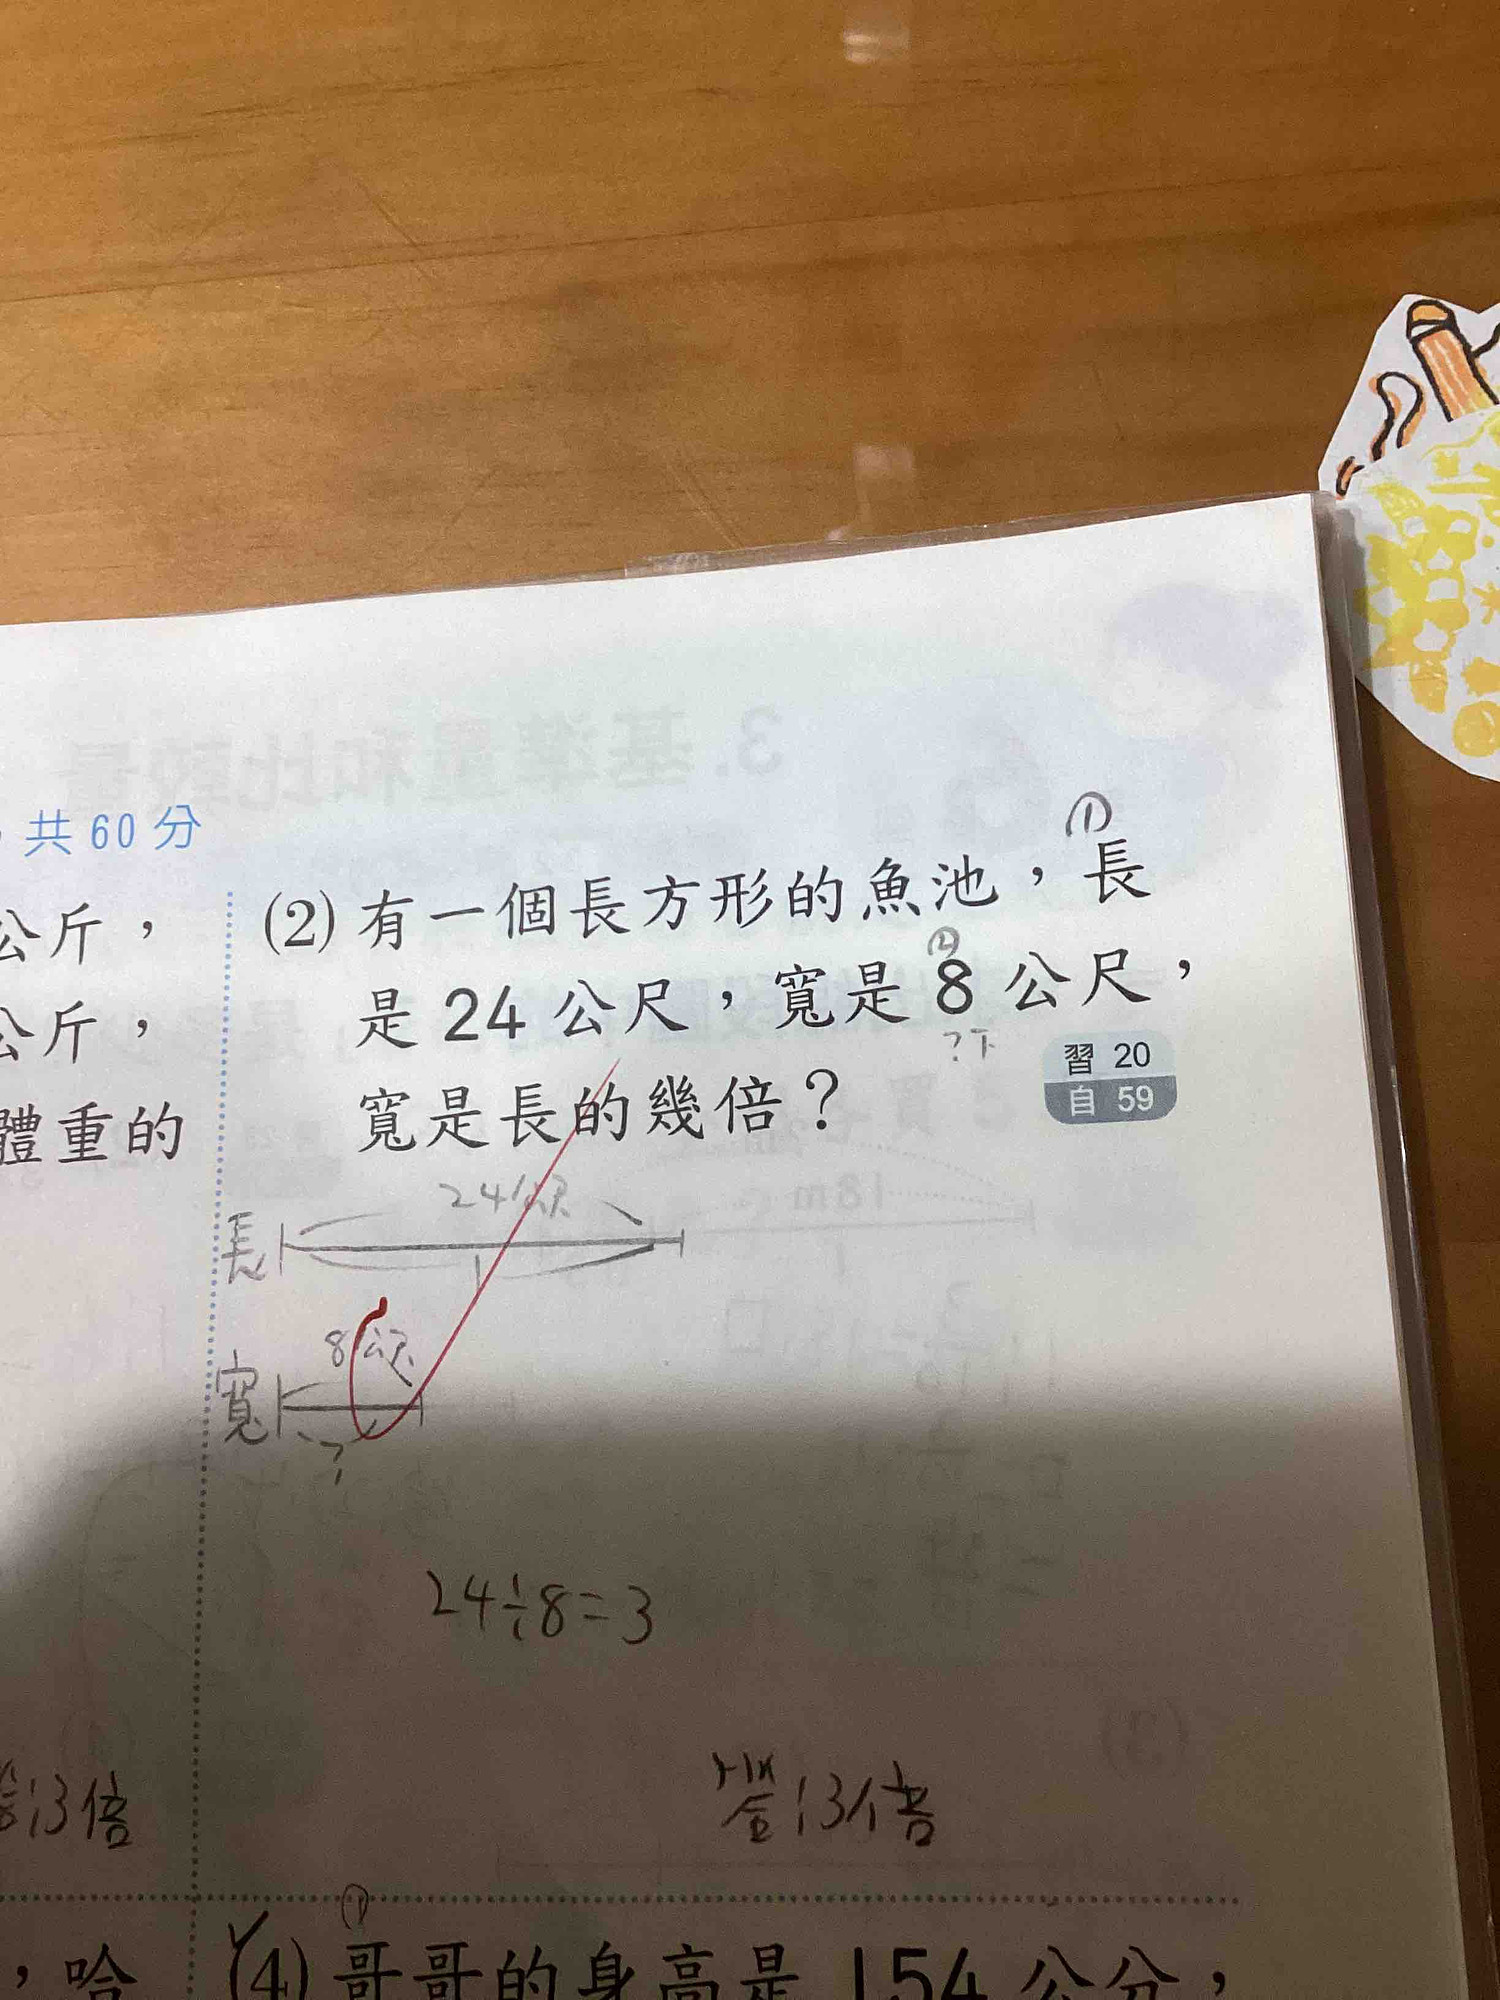 3. 基準量和比較量
，共60分
公斤，
公斤，
體重的
①
(2) 有一個長方形的魚池，長
②
是 24 公尺，寬是 8 公尺，
?下
習 20
自 59
寬是長的幾倍？
24公尺
長
1
8公尺
寬
?
24÷8=3
答:3倍
答:3倍
①
，哈
(4) 哥哥的身高是 154 公分，